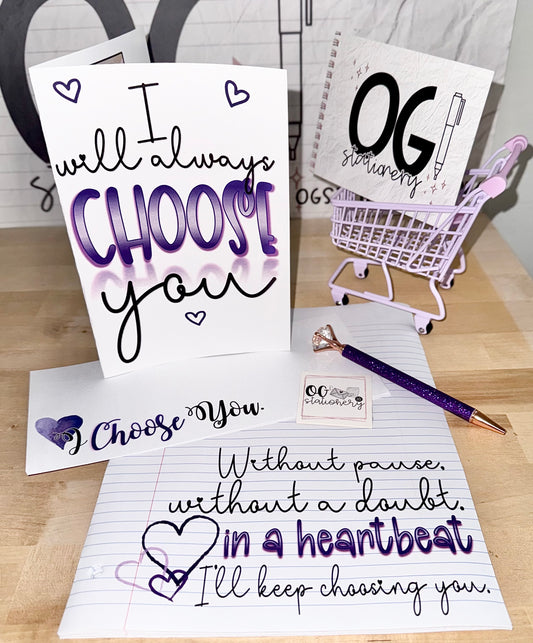 I
will always
CHOOSE
you
OG
stationery
OGS
I Choose You.
OG
stationery
Without pause,
without a doubt.
in a heartbeat
I'll keep choosing you.